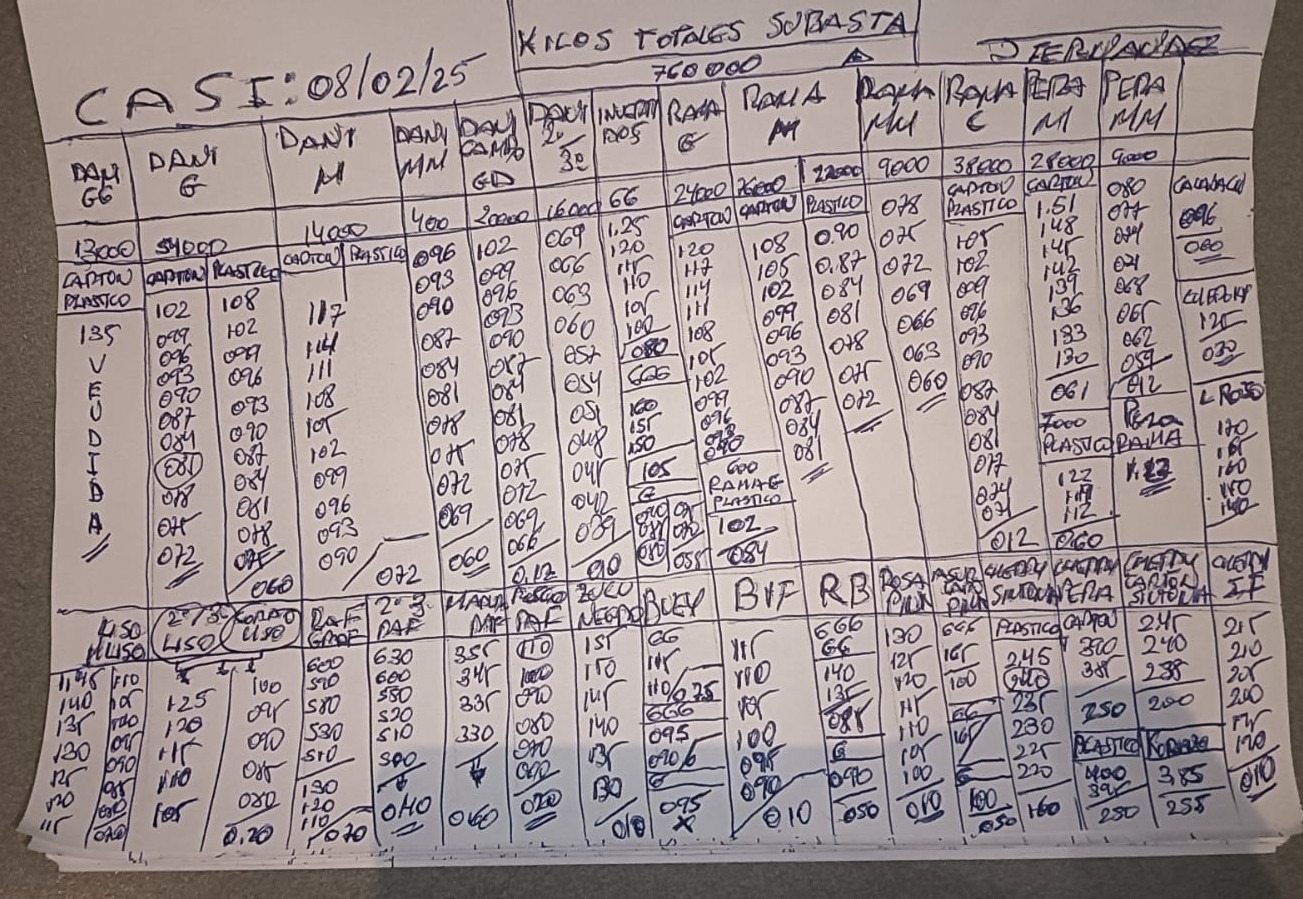 KILOS TOTALES SUBASTA
760000
CASI: 08/02/25
DANI GG
13000
CARTON
PLASTICO
135
V
E
U
D
I
D
A
DANI G
54000
CARTON
102
099
096
093
090
087
084
081
078
075
072
PLASTICO
108
102
099
096
093
090
087
084
081
078
075
060
DANI M
14000
CARTON PLASTICO
117
114
111
108
105
102
099
096
093
090
072
DANI MM
400
096
093
090
087
084
081
078
075
072
069
060
DANI CAMPO GD
20000
102
099
096
093
090
087
084
081
078
075
072
069
066
0.12
DANI 2ª 3ª
16000
069
066
063
060
057
054
051
048
045
042
039
010
INVERTIDOS
GG
1.25
120
115
110
105
100
080
GGG
160
155
150
105
G
RAMA G
24000
CARTON
120
117
114
111
108
105
102
099
096
093
090
600
RAMA G
PLASTICO
102
084
RAMA M
76000
CARTON
108
105
102
099
096
093
090
087
084
081
22000
PLASTICO
0.90
0.87
084
081
078
075
072
RAMA MM
9000
078
075
072
069
066
063
060
RAMA C
38000
CARTON
PLASTICO
105
102
099
096
093
090
087
084
081
077
074
071
012
PERA M
28000
CARTON
1.51
148
145
142
139
136
133
130
061
7000
PLASTICO
122
119
112
060
PERA MM
9000
080
077
074
071
068
065
062
059
012
PERA
RAMA
CALABACIN
096
060
125
030
L ROJO
170
165
160
150
140
LISO
M LISO
1,45
140
135
130
125
120
115
110
105
100
095
090
085
080
070
2ª/3ª
LISO
125
120
115
110
105
CORAZO
LISO
100
095
090
085
080
0.20
RAF
GRADE
600
590
580
530
510
130
120
110
070
2ª 3ª
RAF
630
600
550
520
510
500
040
RAF
355
345
335
330
060
RAF
110
100
090
080
020
ZOCO
NEGRO
155
150
145
140
135
130
010
BUEY
GG
115
110/075
GGG
095
090
G
095
BYF
115
110
105
100
095
090
010
RB
GGG
GG
140
135
085
G
090
050
ROSA
130
125
120
115
110
105
100
010
ASUR
165
100
GG
G
100
050
CHERRY
SINTONIA
PLASTICO
2.45
240
235
230
225
220
160
CHERRY
PERA
CARTON
390
385
250
PLASTICO
400
395
250
CHERRY
CARTON
SINTONIA
2.45
240
238
200
KORAZO
3.85
255
CHERRY
IF
215
210
205
200
195
190
010